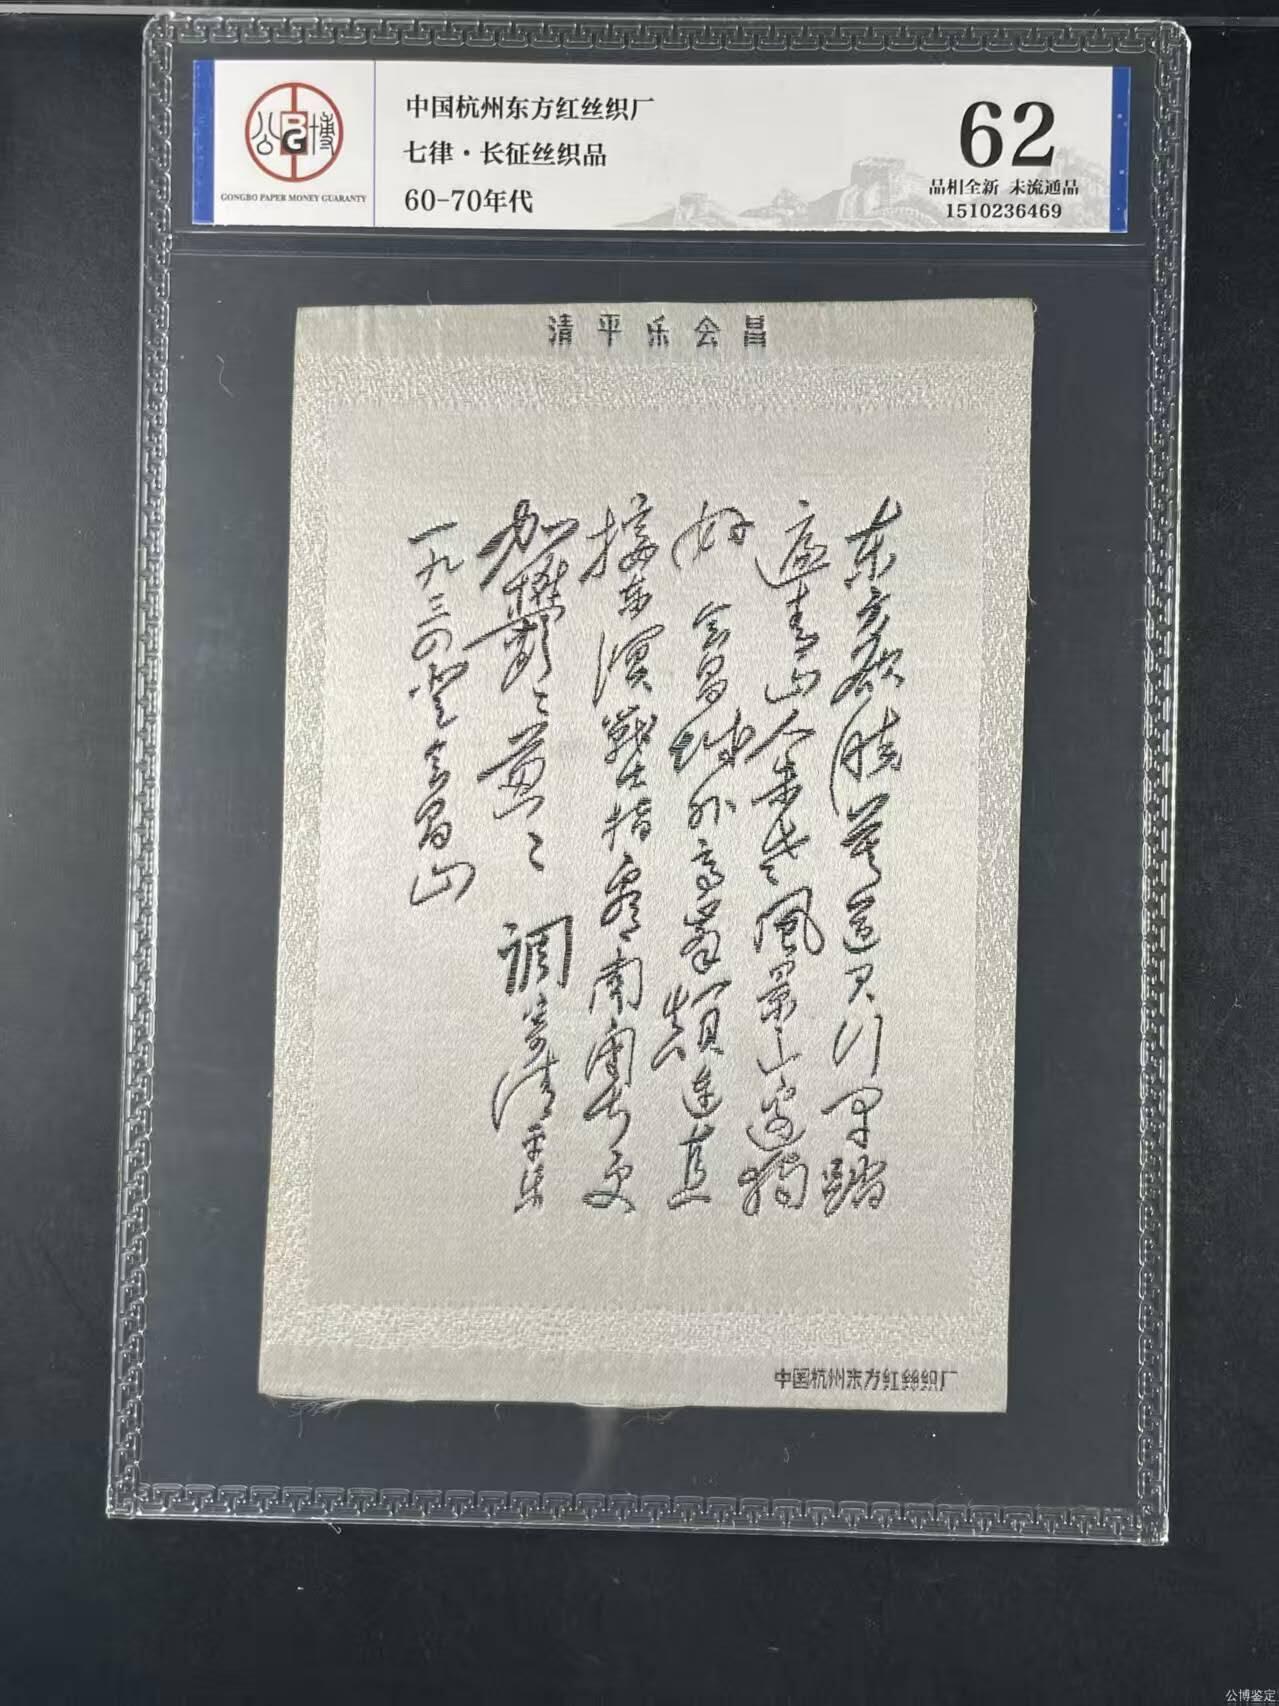 公博
BPG
GONGBO PAPER MONEY GUARANTY
中国杭州东方红丝织厂
七律·长征丝织品
60-70年代
62
品相全新 未流通品
1510236469
清平乐会昌
东方欲晓莫道君行早踏
遍青山人未老風景这边独
好 会昌城外高峯顛连直
接东溟戰士指看南粤更
加鬱〻葱〻 調寄清平乐
一九三四登会昌山
中国杭州东方红丝织厂
公博鉴定